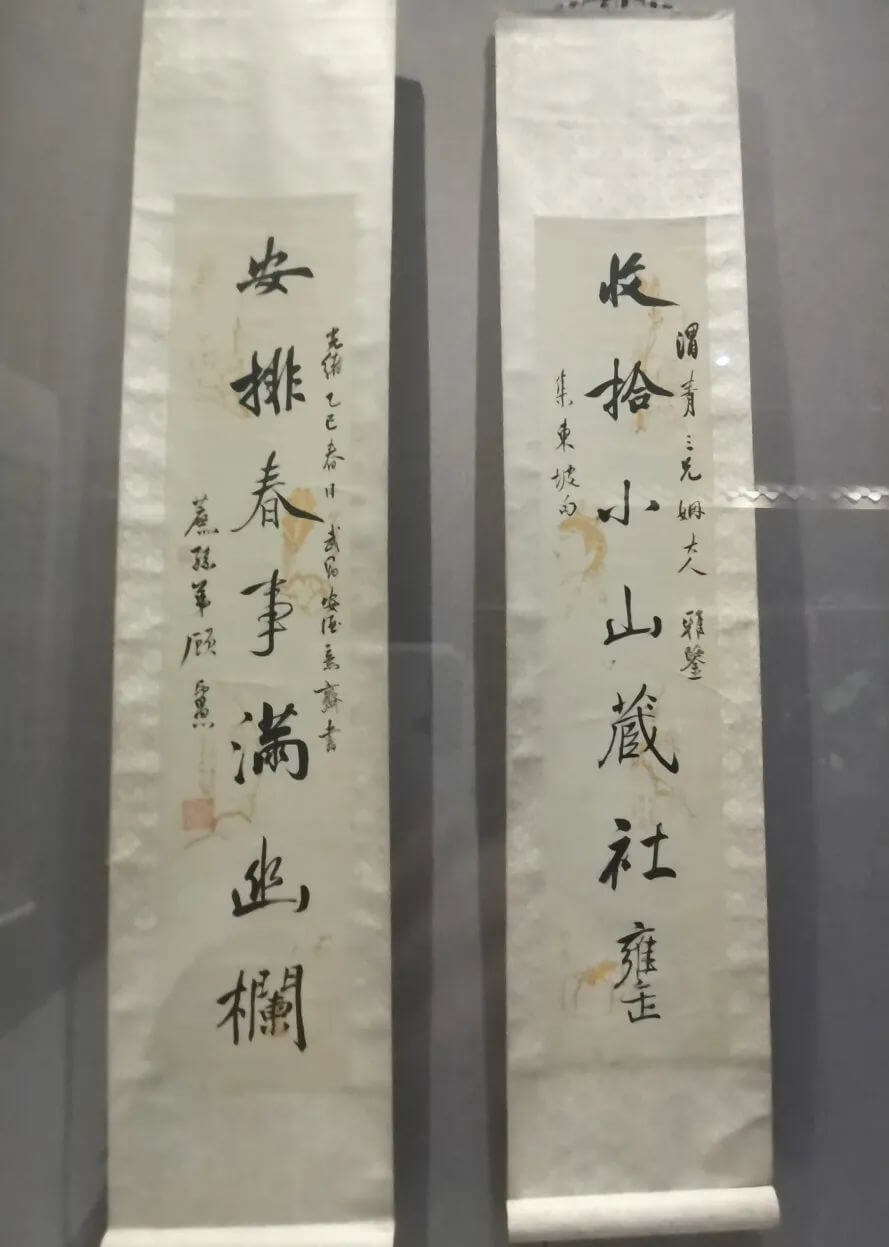 渭青三兄姻大人 雅鑒
收拾小山藏社罋
集東坡句
光緒乙巳春日 武昌安酒意齋書
安排春事滿幽欄
蔗孫弟顧印愚